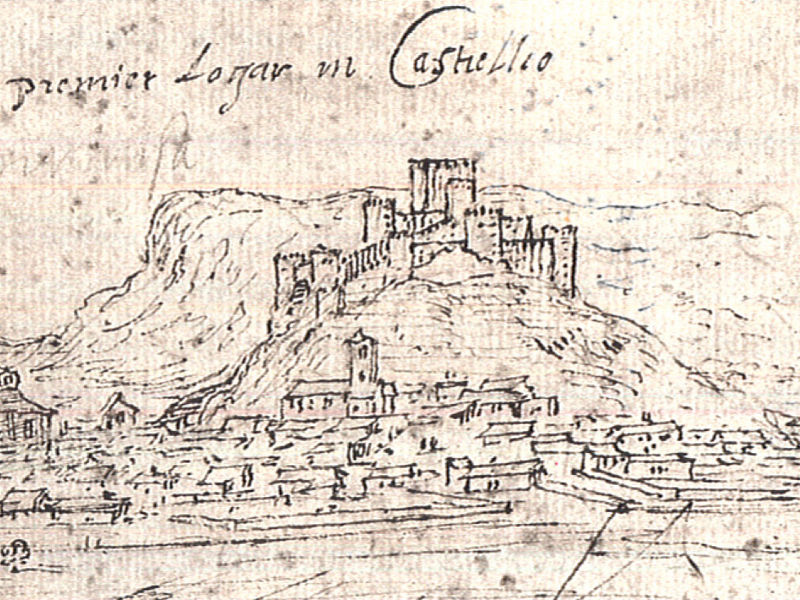 premier Logar in Castiellio